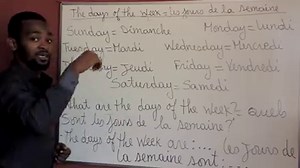 The days of the Week = les jours de la semaine
Sunday = Dimanche Monday = Lundi
Tuesday = Mardi Wednesday = Mercredi
Jeudi Friday = Vendredi
Saturday = Samedi
What are the days of the week? = quels
sont les jours de la semaine?
- The days of the week are : ... (les jours de
la semaine sont : ...